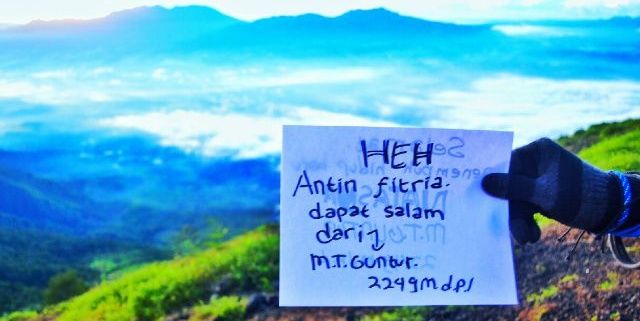 HEH
Antin fitria.
dapat salam
dari
M.T.Guntur.
2249Mdpl